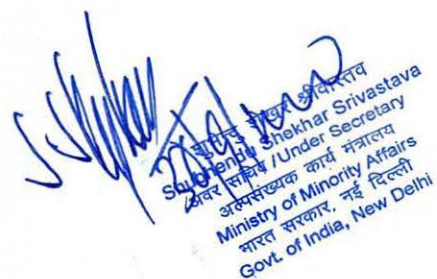 शेखर श्रीवास्तव
Shubhendu Shekhar Srivastava
अवर सचिव /Under Secretary
अल्पसंख्यक कार्य मंत्रालय
Ministry of Minority Affairs
भारत सरकार, नई दिल्ली
Govt. of India, New Delhi